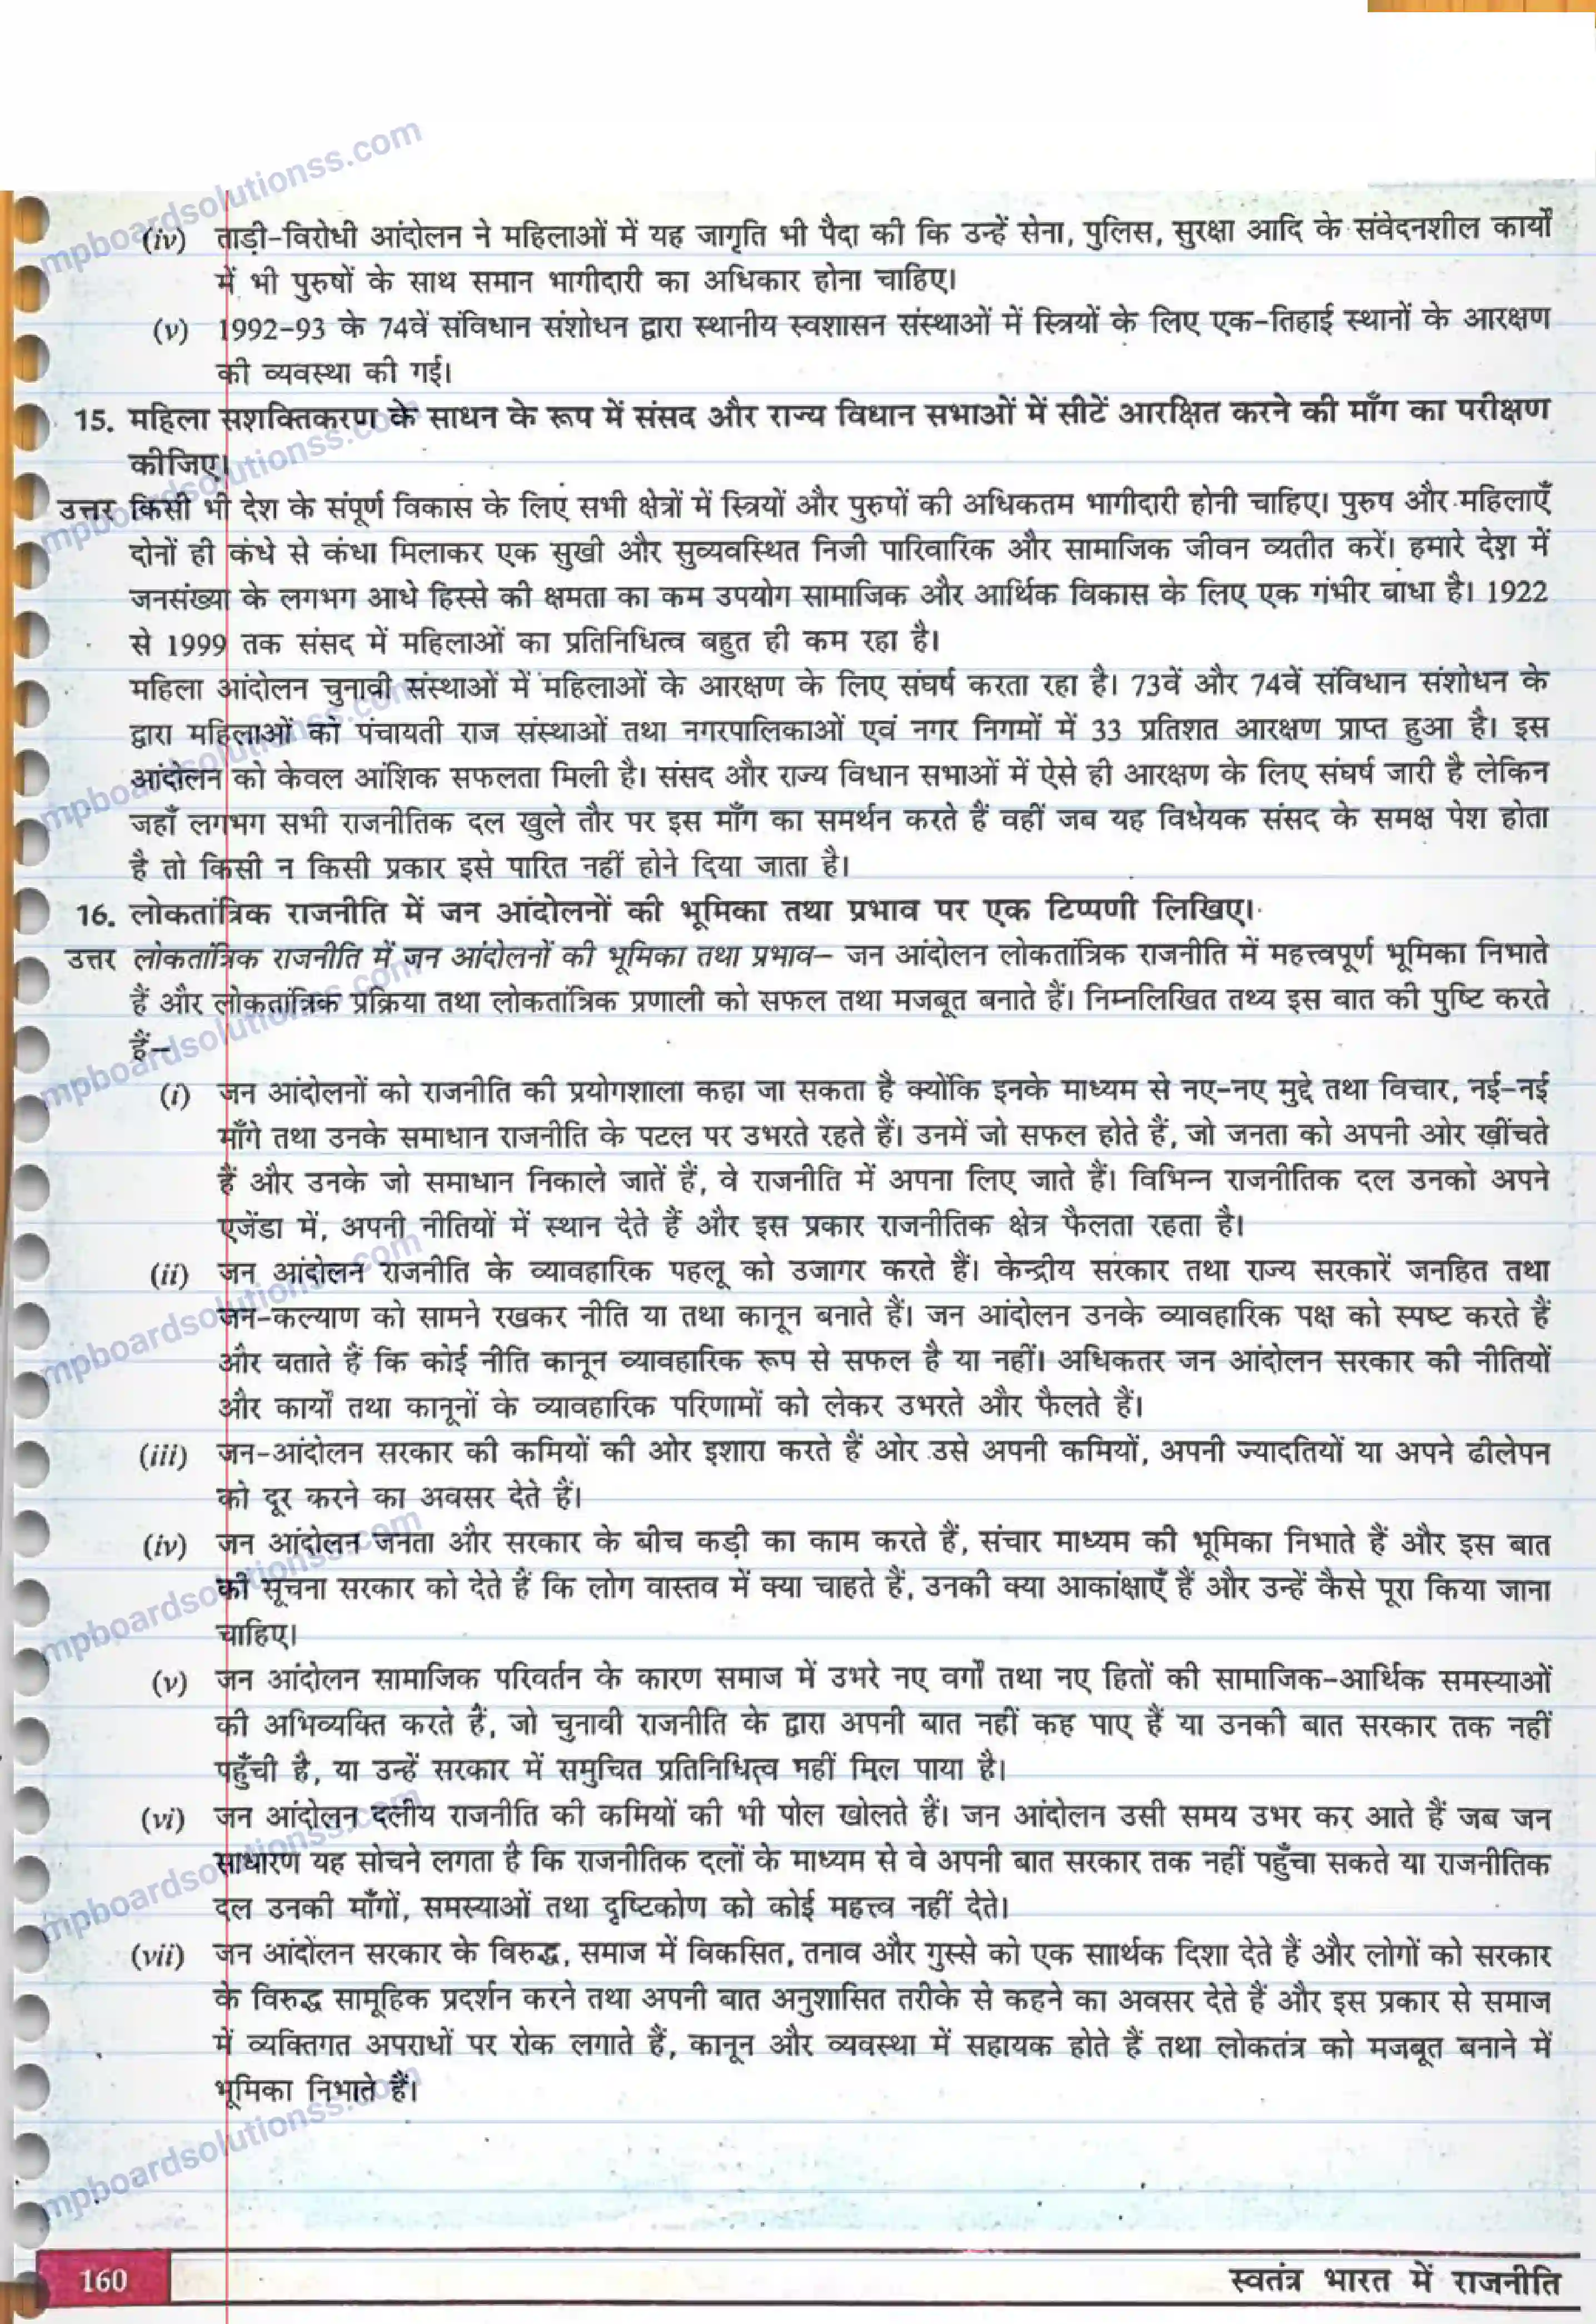 (iv) ताड़ी-विरोधी आंदोलन ने महिलाओं में यह जागृति भी पैदा की कि उन्हें सेना, पुलिस, सुरक्षा आदि के संवेदनशील कार्यों
में भी पुरुषों के साथ समान भागीदारी का अधिकार होना चाहिए।
(v) 1992-93 के 74वें संविधान संशोधन द्वारा स्थानीय स्वशासन संस्थाओं में स्त्रियों के लिए एक-तिहाई स्थानों के आरक्षण
की व्यवस्था की गई।
15. महिला सशक्तिकरण के साधन के रूप में संसद और राज्य विधान सभाओं में सीटें आरक्षित करने की माँग का परीक्षण
कीजिए।
उत्तर किसी भी देश के संपूर्ण विकास के लिए सभी क्षेत्रों में स्त्रियों और पुरुषों की अधिकतम भागीदारी होनी चाहिए। पुरुष और महिलाएँ
दोनों ही कंधे से कंधा मिलाकर एक सुखी और सुव्यवस्थित निजी पारिवारिक और सामाजिक जीवन व्यतीत करें। हमारे देश में
जनसंख्या के लगभग आधे हिस्से की क्षमता का कम उपयोग सामाजिक और आर्थिक विकास के लिए एक गंभीर बाधा है। 1922
से 1999 तक संसद में महिलाओं का प्रतिनिधित्व बहुत ही कम रहा है।
महिला आंदोलन चुनावी संस्थाओं में महिलाओं के आरक्षण के लिए संघर्ष करता रहा है। 73वें और 74वें संविधान संशोधन के
द्वारा महिलाओं को पंचायती राज संस्थाओं तथा नगरपालिकाओं एवं नगर निगमों में 33 प्रतिशत आरक्षण प्राप्त हुआ है। इस
आंदोलन को केवल आंशिक सफलता मिली है। संसद और राज्य विधान सभाओं में ऐसे ही आरक्षण के लिए संघर्ष जारी है लेकिन
जहाँ लगभग सभी राजनीतिक दल खुले तौर पर इस माँग का समर्थन करते हैं वहीं जब यह विधेयक संसद के समक्ष पेश होता
है तो किसी न किसी प्रकार इसे पारित नहीं होने दिया जाता है।
16. लोकतांत्रिक राजनीति में जन आंदोलनों की भूमिका तथा प्रभाव पर एक टिप्पणी लिखिए।
उत्तर लोकतांत्रिक राजनीति में जन आंदोलनों की भूमिका तथा प्रभाव– जन आंदोलन लोकतांत्रिक राजनीति में महत्त्वपूर्ण भूमिका निभाते
हैं और लोकतांत्रिक प्रक्रिया तथा लोकतांत्रिक प्रणाली को सफल तथा मजबूत बनाते हैं। निम्नलिखित तथ्य इस बात की पुष्टि करते
हैं–
(i) जन आंदोलनों को राजनीति की प्रयोगशाला कहा जा सकता है क्योंकि इनके माध्यम से नए-नए मुद्दे तथा विचार, नई-नई
माँगे तथा उनके समाधान राजनीति के पटल पर उभरते रहते हैं। उनमें जो सफल होते हैं, जो जनता को अपनी ओर खींचते
हैं और उनके जो समाधान निकाले जातें हैं, वे राजनीति में अपना लिए जाते हैं। विभिन्न राजनीतिक दल उनको अपने
एजेंडा में, अपनी नीतियों में स्थान देते हैं और इस प्रकार राजनीतिक क्षेत्र फैलता रहता है।
(ii) जन आंदोलन राजनीति के व्यावहारिक पहलू को उजागर करते हैं। केन्द्रीय सरकार तथा राज्य सरकारें जनहित तथा
जन-कल्याण को सामने रखकर नीति या तथा कानून बनाते हैं। जन आंदोलन उनके व्यावहारिक पक्ष को स्पष्ट करते हैं
और बताते हैं कि कोई नीति कानून व्यावहारिक रूप से सफल है या नहीं। अधिकतर जन आंदोलन सरकार की नीतियों
और कार्यों तथा कानूनों के व्यावहारिक परिणामों को लेकर उभरते और फैलते हैं।
(iii) जन-आंदोलन सरकार की कमियों की ओर इशारा करते हैं ओर उसे अपनी कमियों, अपनी ज्यादतियों या अपने ढीलेपन
को दूर करने का अवसर देते हैं।
(iv) जन आंदोलन जनता और सरकार के बीच कड़ी का काम करते हैं, संचार माध्यम की भूमिका निभाते हैं और इस बात
की सूचना सरकार को देते हैं कि लोग वास्तव में क्या चाहते हैं, उनकी क्या आकांक्षाएँ हैं और उन्हें कैसे पूरा किया जाना
चाहिए।
(v) जन आंदोलन सामाजिक परिवर्तन के कारण समाज में उभरे नए वर्गों तथा नए हितों की सामाजिक-आर्थिक समस्याओं
की अभिव्यक्ति करते हैं, जो चुनावी राजनीति के द्वारा अपनी बात नहीं कह पाए हैं या उनकी बात सरकार तक नहीं
पहुँची है, या उन्हें सरकार में समुचित प्रतिनिधित्व नहीं मिल पाया है।
(vi) जन आंदोलन दलीय राजनीति की कमियों की भी पोल खोलते हैं। जन आंदोलन उसी समय उभर कर आते हैं जब जन
साधारण यह सोचने लगता है कि राजनीतिक दलों के माध्यम से वे अपनी बात सरकार तक नहीं पहुँचा सकते या राजनीतिक
दल उनकी माँगों, समस्याओं तथा दृष्टिकोण को कोई महत्त्व नहीं देते।
(vii) जन आंदोलन सरकार के विरुद्ध, समाज में विकसित, तनाव और गुस्से को एक साार्थक दिशा देते हैं और लोगों को सरकार
के विरुद्ध सामूहिक प्रदर्शन करने तथा अपनी बात अनुशासित तरीके से कहने का अवसर देते हैं और इस प्रकार से समाज
में व्यक्तिगत अपराधों पर रोक लगाते हैं, कानून और व्यवस्था में सहायक होते हैं तथा लोकतंत्र को मजबूत बनाने में
भूमिका निभाते हैं।
160 स्वतंत्र भारत में राजनीति
mpboardsolutionss.com
mpboardsolutionss.com
mpboardsolutionss.com
mpboardsolutionss.com
mpboardsolutionss.com
mpboardsolutionss.com
mpboardsolutionss.com
mpboardsolutionss.com